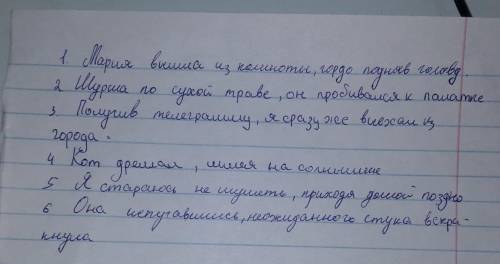 1. Мария вышла из комноты, гордо подняв голову.
2 Шурша по сухой траве, он пробивался к палатке
3. Получив телеграмму, я сразу же выехал из
города.
4 Кот дремал, на солнышке
5 Я стараюсь не шуметь, приходя домой поздно
6 Она испугавшись, неожиданного стука вскри-
кнула